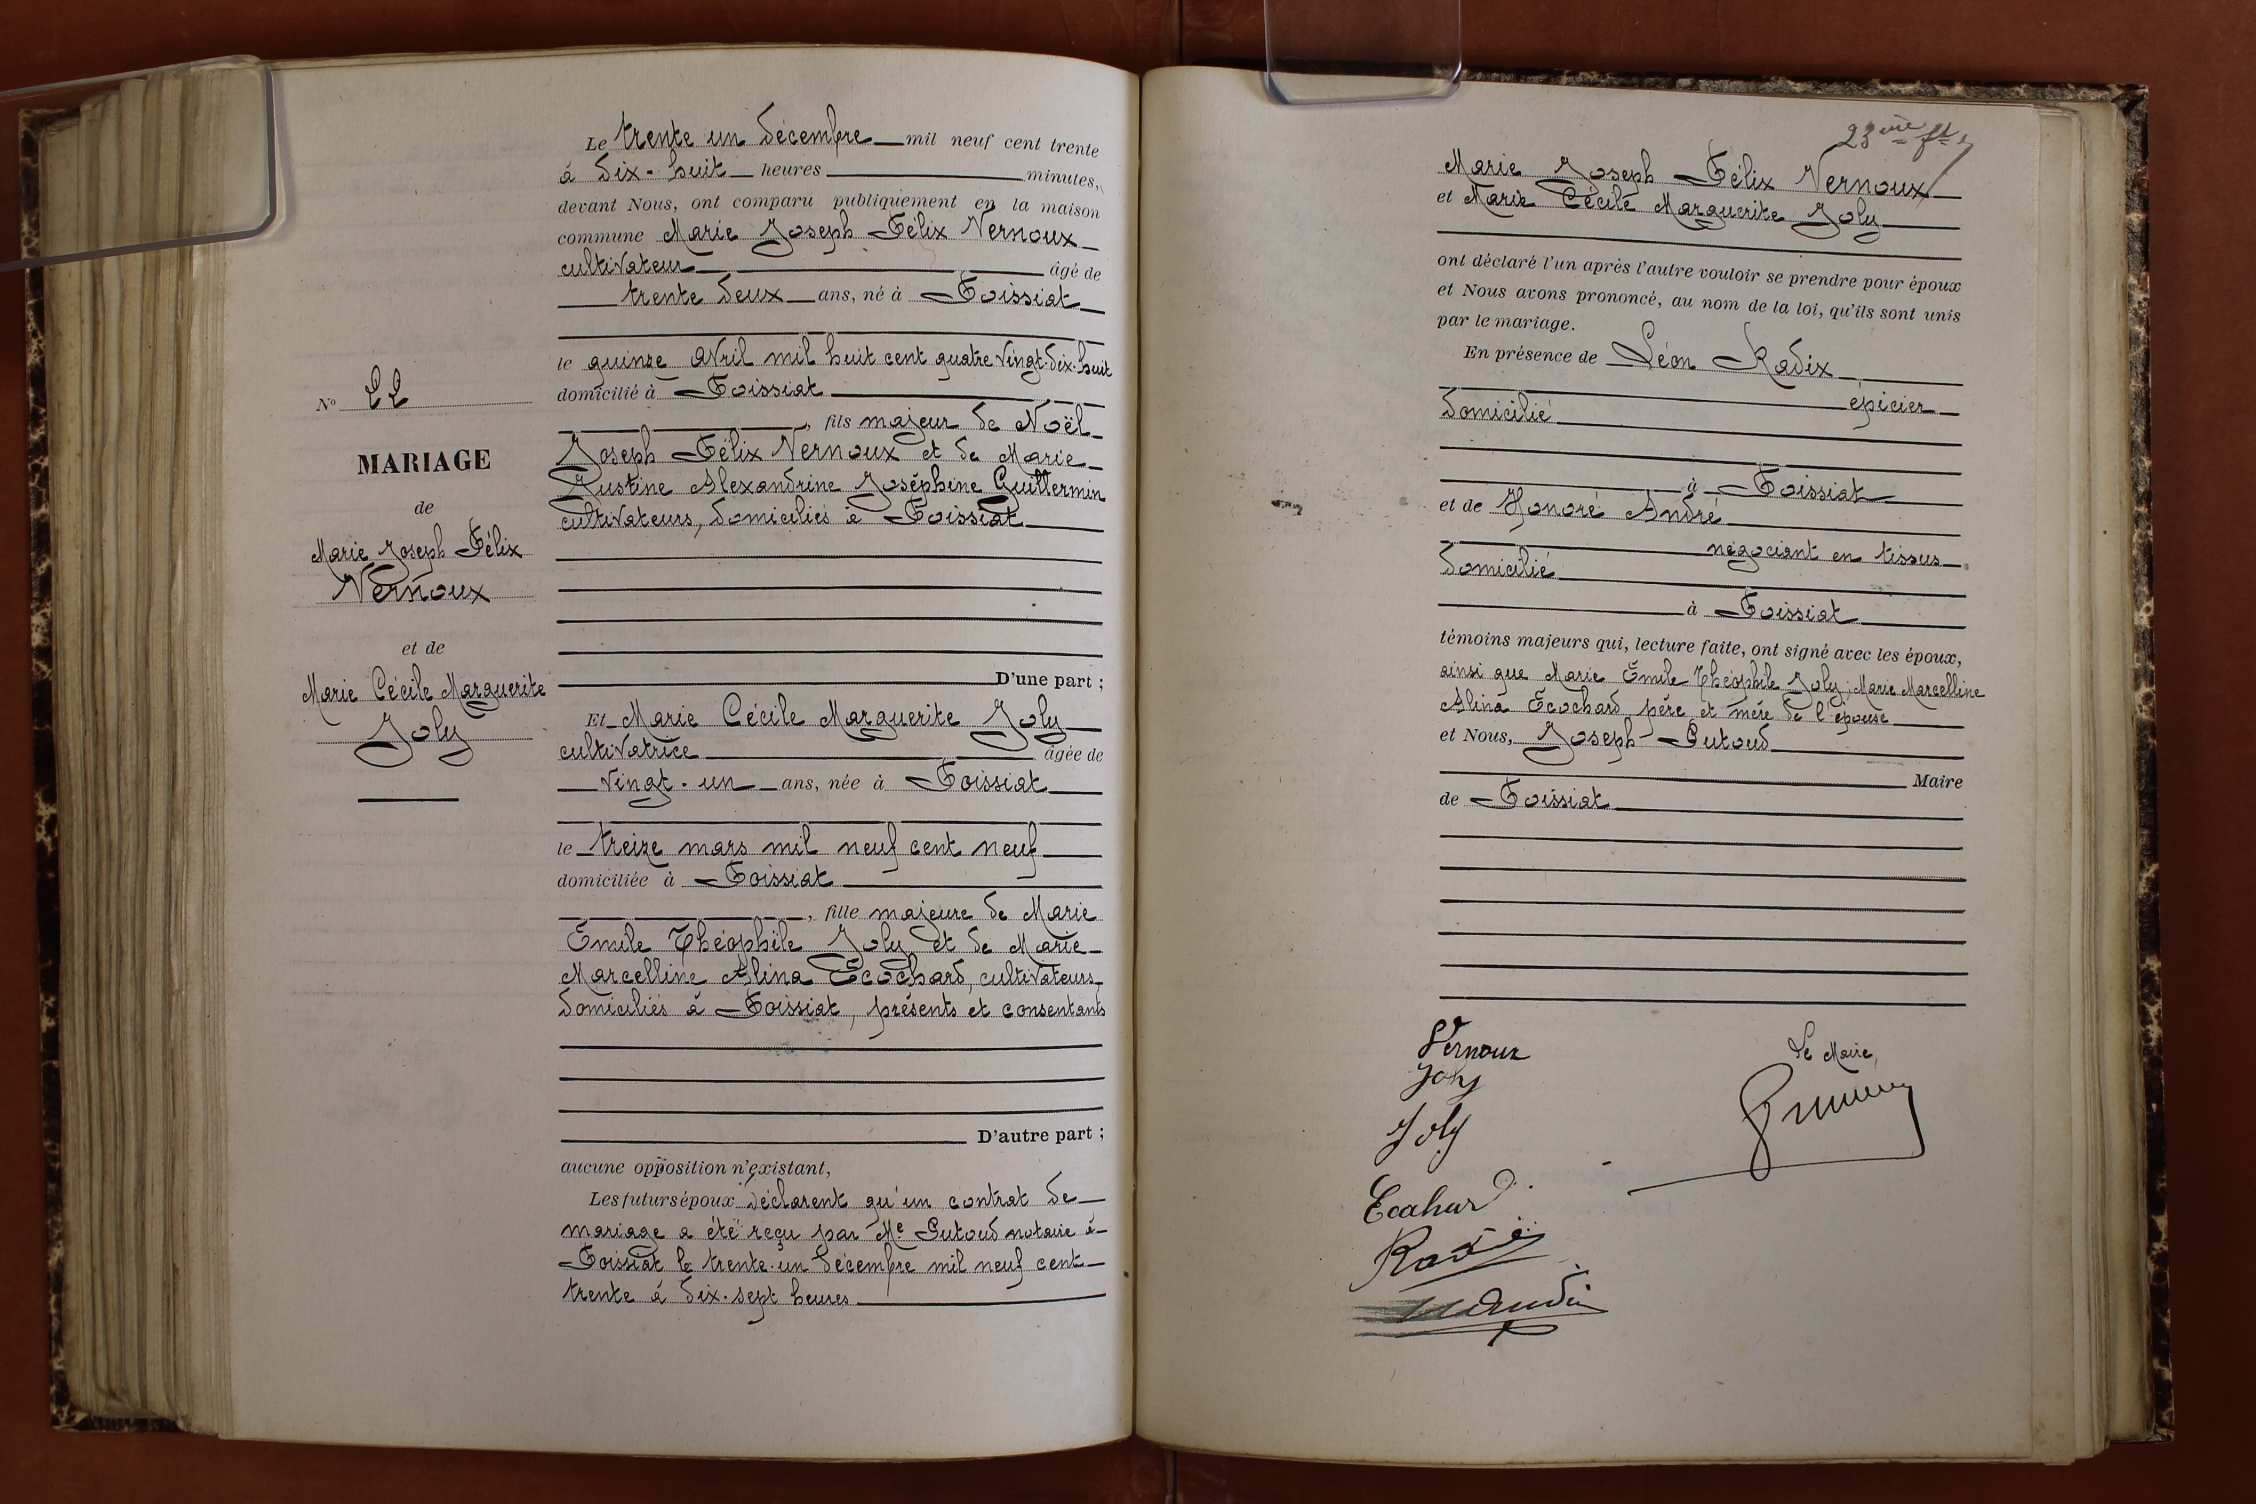 N° 22
MARIAGE
de
Marie Joseph Félix
Vernoux
et de
Marie Cécile Marguerite
Joly
Le trente un décembre mil neuf cent trente
à dix-huit heures minutes,
devant Nous, ont comparu publiquement en la maison
commune Marie Joseph Félix Vernoux
cultivateur âgé de
trente deux ans, né à Foissiat
le quinze avril mil huit cent quatre vingt-dix-huit
domicilié à Foissiat
, fils majeur de Noël
Joseph Félix Vernoux et de Marie
Justine Alexandrine Joséphine Guillermin
cultivateurs, domiciliés à Foissiat
D'une part ;
Et Marie Cécile Marguerite Joly
cultivatrice âgée de
vingt-un ans, née à Foissiat
le treize mars mil neuf cent neuf
domiciliée à Foissiat
, fille majeure de Marie
Emile Théophile Joly et de Marie
Marcelline Alina Ecochard, cultivateurs
domiciliés à Foissiat, présents et consentants
D'autre part ;
aucune opposition n'existant,
Les futurs époux déclarent qu'un contrat de
mariage a été reçu par Me Putoud notaire à
Foissiat le trente-un décembre mil neuf cent
trente à dix-sept heures
23ème ft
Marie Joseph Félix Vernoux
et Marie Cécile Marguerite Joly
ont déclaré l'un après l'autre vouloir se prendre pour époux
et Nous avons prononcé, au nom de la loi, qu'ils sont unis
par le mariage.
En présence de Léon Radix
épicier
domicilié
à Foissiat
et de Honoré André
négociant en tissus
domicilié
à Foissiat
témoins majeurs qui, lecture faite, ont signé avec les époux,
ainsi que Marie Emile Théophile Joly, Marie Marcelline
Alina Ecochard père et mère de l'épouse
et Nous, Joseph Putoud
Maire
de Foissiat
Vernoux
Joly
Le Maire,
Joly
Radix